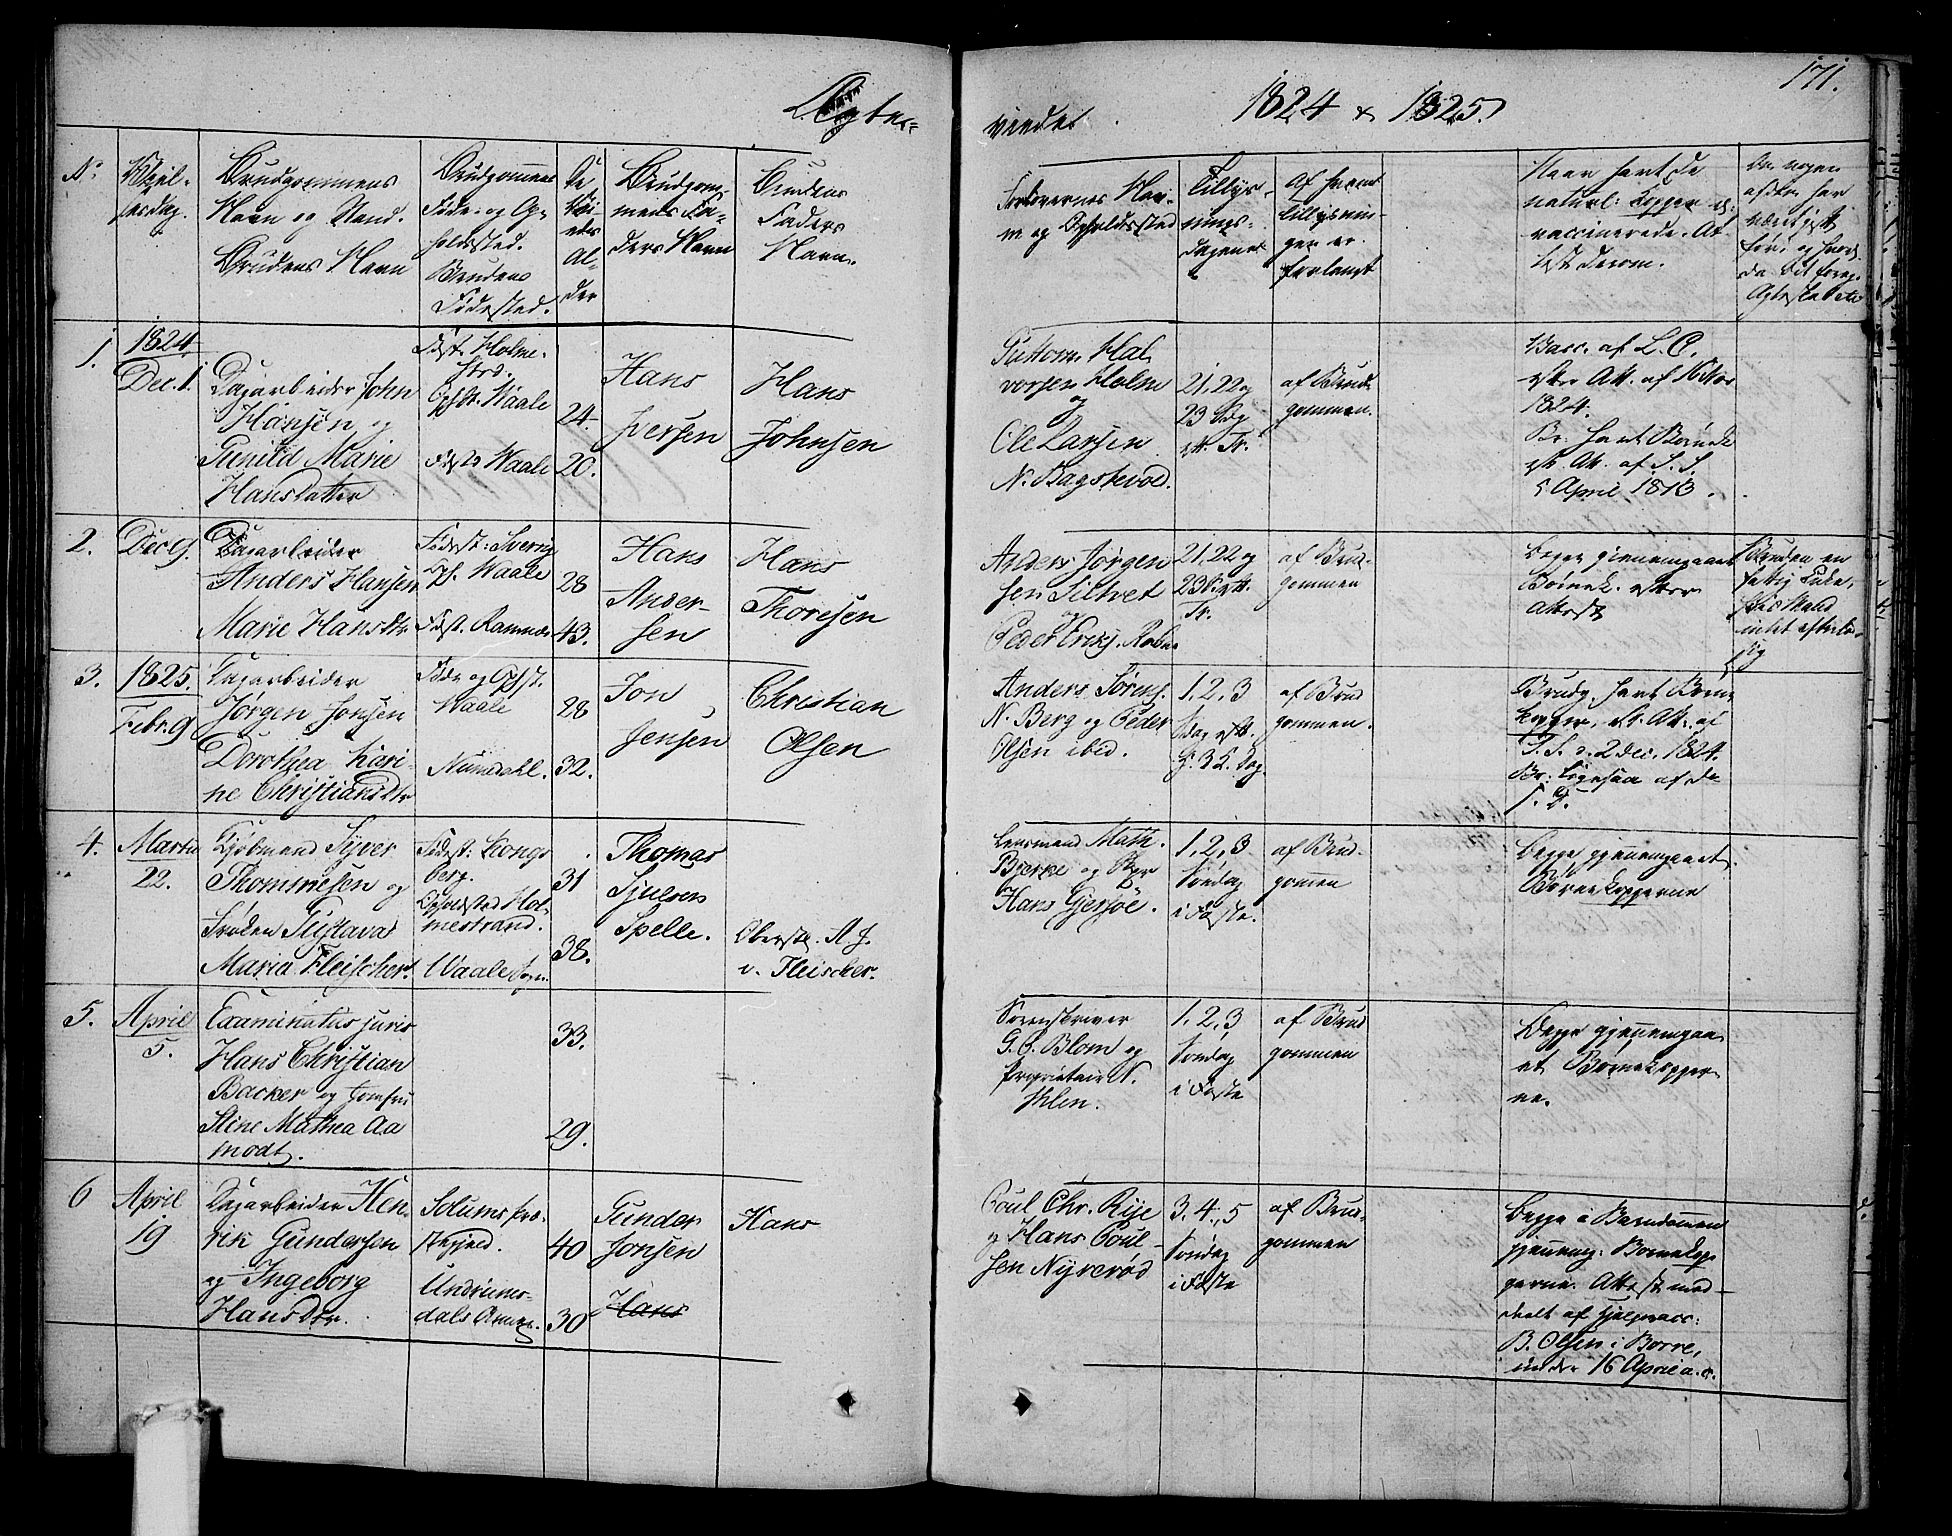 Ægte=
viede
1824 & 1825.
171.
No
Vejel-
sesdag.
Brudgommens
Navn og Stand.
Brudens Navn
Brudgommens
Føde- og Op-
holdssted.
Brudens
Fødested.
De
Vi-
edes
Al-
der
Brudgom-
mens Fa-
ders Navn
Brudens
Faders
Navn.
Forlovernes Nav-
n og Opholdssted
Tillys-
nings-
dagene
Af hvem
tillysnin-
gen er
forlangt
Naar havt de
naturl: Kopper el:
vaccinerede. At-
test derom.
Om nogen
af dem har
været gift
før; og hvor-
1.
1824.
Dec. 1.
Dagarbeider John
Hansen og
Gunild Marie
Hansdatter
Fdst. Holme-
strd.
Opst. Waale
Fdst. Waale
24.
20.
Hans
Iversen
Hans
Johnsen
Guttorm Hal
vorsen Holm
og
Ole Larsen
N. Bagstevold.
21, 22 og
23 Sdg
eft. Tr.
af Brud-
gommen.
Vacc. af L. C.
efter Att. af 16 Nov
1824.
Br. havt Børnek
eft. Att. af S. S.
5 April 1813.
2.
Dec 9.
Dagarbeider
Anders Hansen
Marie Hansdtr
Fødest: Sverig
Op. Waale
Fdst. Ramnæs
28
43.
Hans
Ander-
sen
Hans
Thoresen
Anders Jørgen
sen Siltvet
og
Peder Eriks.
21, 22 og
23 S. eft.
Tr.
af Brud-
gommen
Begge gjennemgaaet
Børnek. efter
Attest
Bruden en
fattig Enke,
hvis Mand
intet efterlod
sig
3.
1825.
Febr. 9
Dagarbeider
Jørgen Jonsen
Dorothea Kari-
ne Christiansdtr
Føde og Opst.
Waale
Numedahl.
28
32.
Jon
Jensen
Christian
Olsen
Anders Sørens.
N. Berg og Peder
Olsen ibid.
1, 2, 3
Sdag eft.
H. 3 K. Dag.
af Brud
gommen.
Brudg. havt Børne
kopper, eft. Att. af
S. S. d. 2 Dec. 1824.
Br: Ligesaa af do
4.
Martii
22.
Kjøbmand Syver
Thomesen og
Frøken Gustava
Maria Fleischer.
Fødest: Kongs
berg.
Opholdsted Hol-
mestrand.
Waale
31
38.
Thomas
Sjulsen
Spelle.
Oberstl. A. J.
v. Fleischer.
Lensmand Math.
Bjerke og Skpr
Hans Gjersøe.
1, 2, 3
Søndag
i Faste.
af Brud-
gommen
Begge gjennemgaaet
Børnekopperne
5.
April
5.
Examinatus juris
Hans Christian
Backer og Jomfru
Stine Mathea Aa
modt.
33.
29.
Sorenskriver
G. P. Blom og
Proprietair N.
Ihlen.
1, 2, 3
Søndag
i Faste
af Brud
gommen
Begge gjennemgaa
et Børnekopper
ne.
6
April
19
Dagarbeider Hen-
rik Gundersen
og Ingeborg
Hansdtr.
Solums Præ-
stegjeld.
Undrums-
dals Annex.
40
30
Gunder
Jonsen
Hans
Hans
Poul Chr. Rise
og Hans Poul-
sen Nyrerød
3, 4, 5
Søndag
i Faste
af Brud-
gommen
Begge i Barndommen
gjennemg: Børnekop
perne. Attest med-
deelt af Hjelpevacc:
B. Olsen i Borre,
under 16 April a. c.